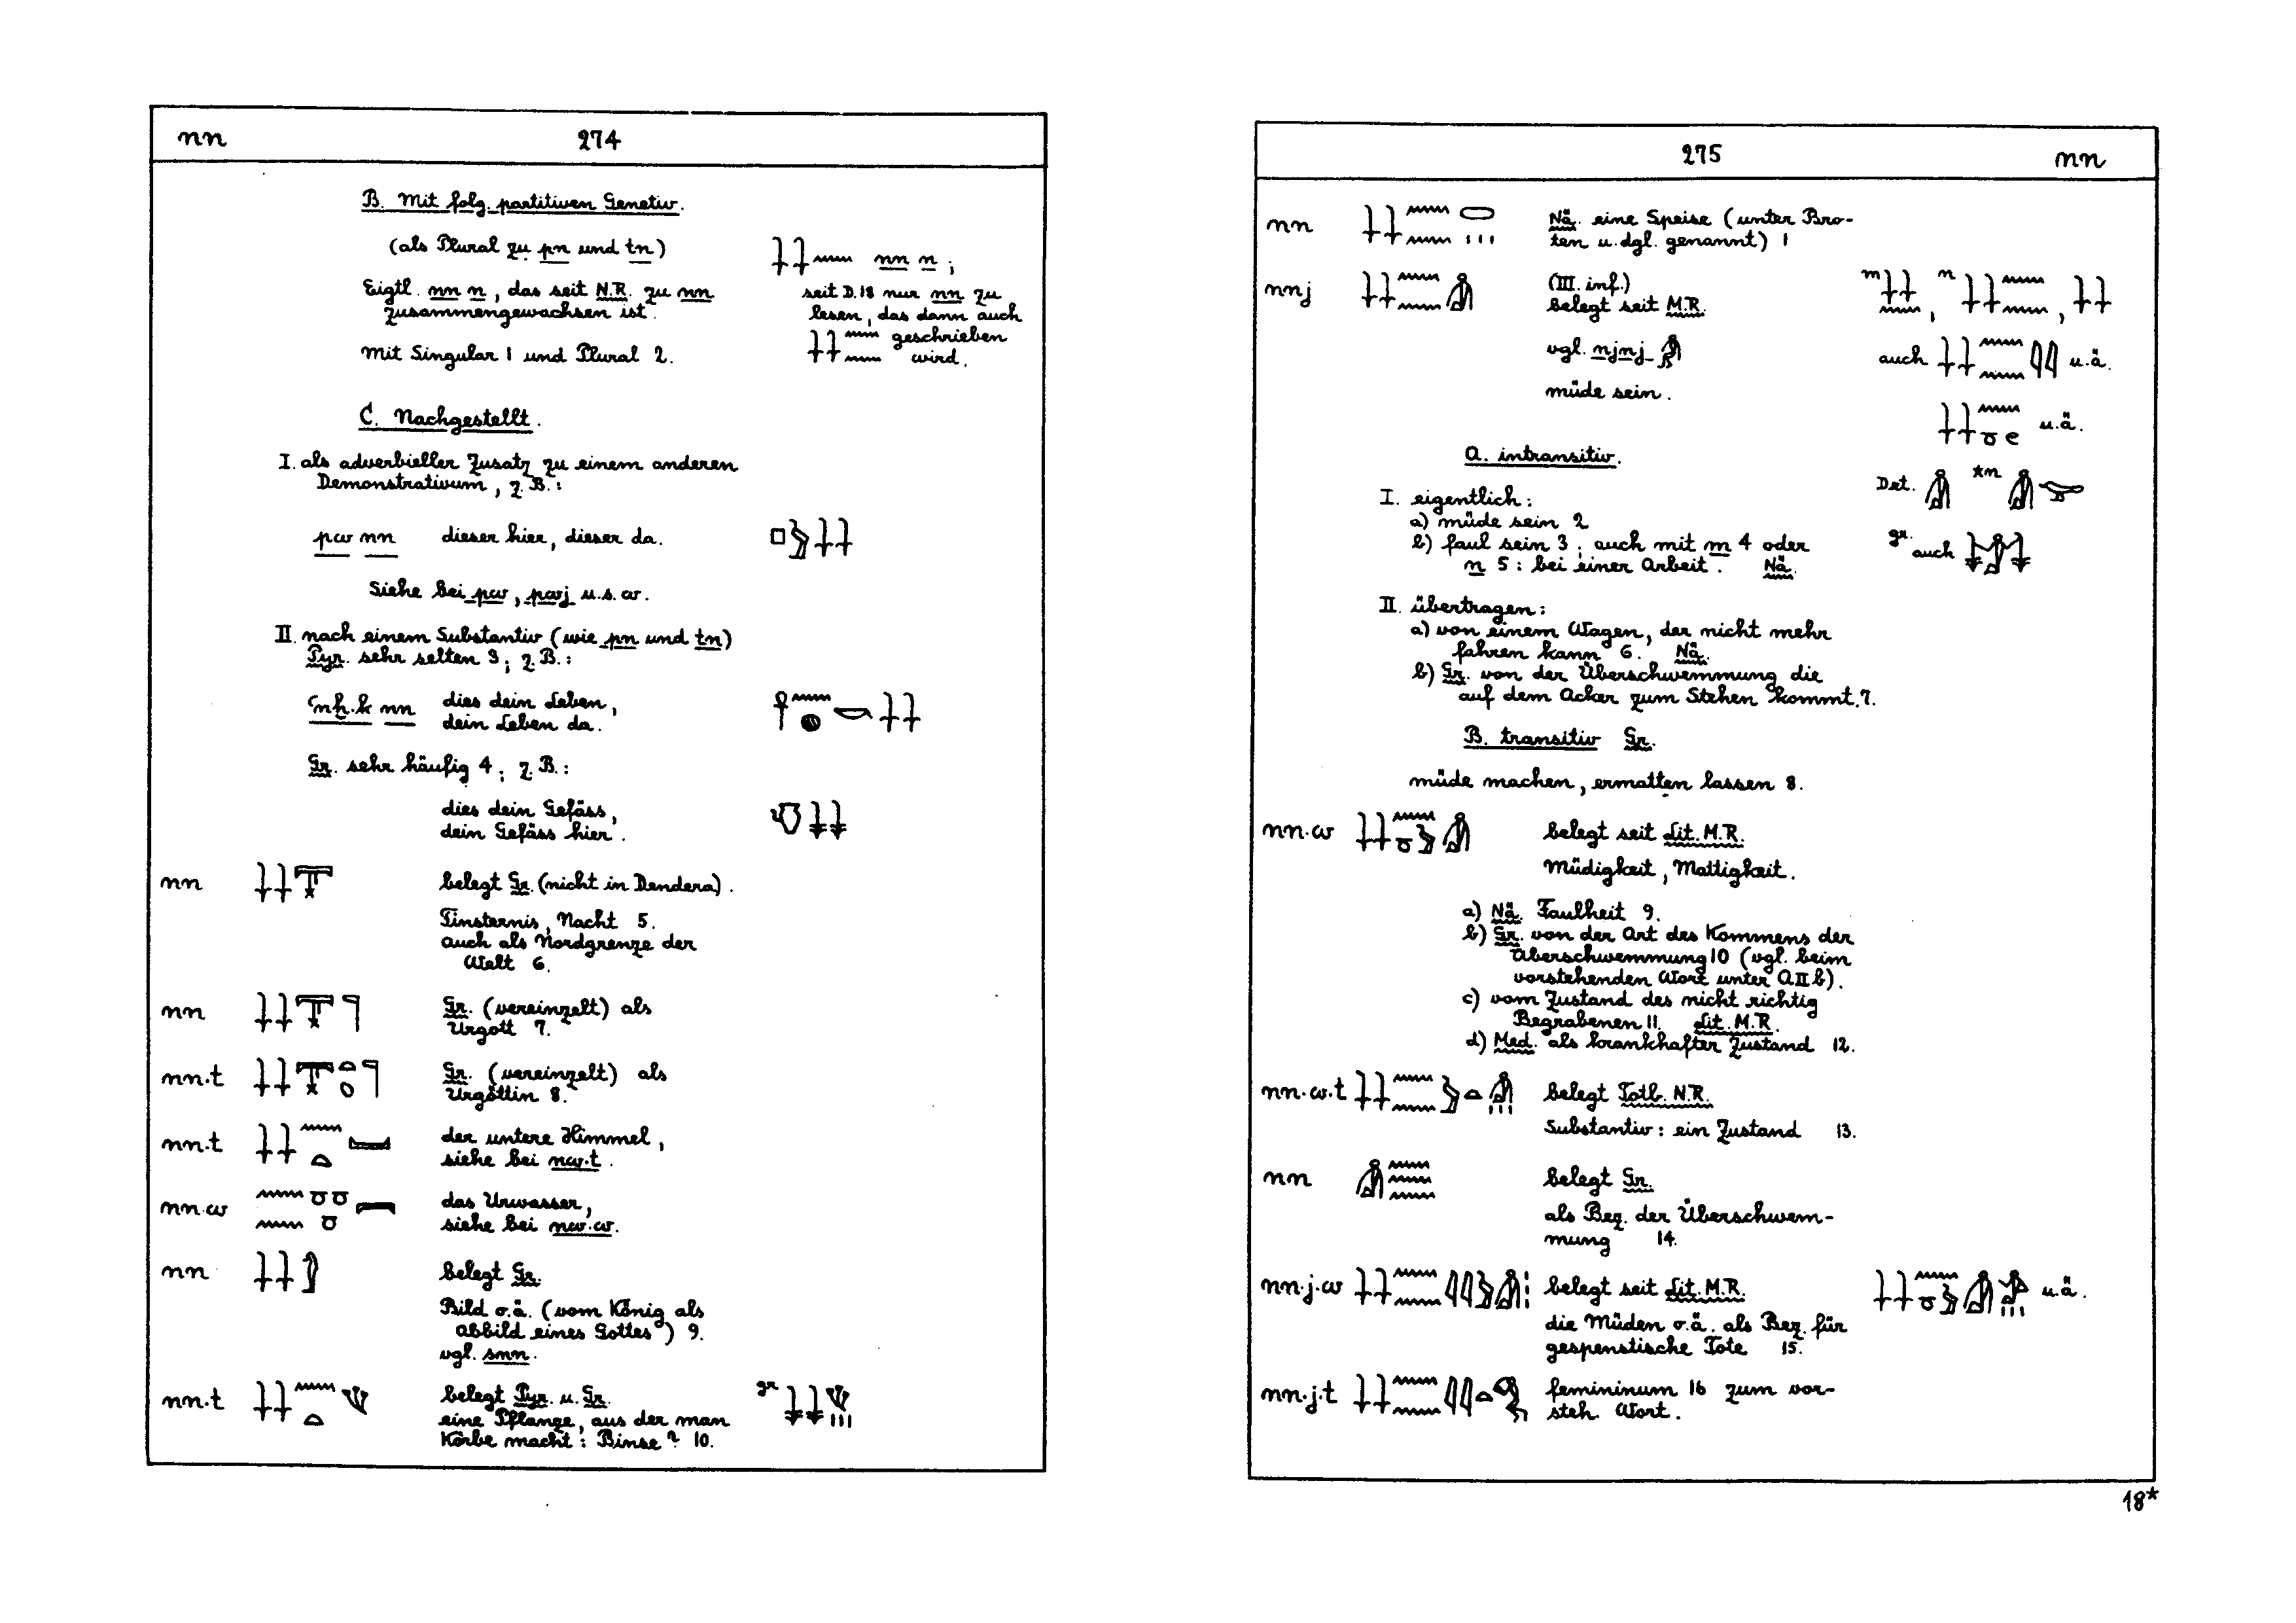 nn 274
B. Mit folg. partitiven Genetiv.
(als Plural zu pn und tn)
nn n ;
Eigtl. nn n, das seit N.R. zu nn
zusammengewachsen ist.
seit D.18 nur nn zu
lesen, das dann auch
geschrieben
wird.
Mit Singular 1 und Plural 2.
C. Nachgestellt.
I. als adverbieller Zusatz zu einem anderen
Demonstrativum, z.B.:
pw nn dieser hier, dieser da.
Siehe bei pw, pwj u.s.w.
II. nach einem Substantiv (wie pn und tn)
Pyr. sehr selten 3; z.B.:
ꜥnḫ.k nn dies dein Leben,
dein Leben da.
Gr. sehr häufig 4; z.B.:
dies dein Gefäss,
dein Gefäss hier.
nn belegt Gr. (nicht in Dendera).
Finsternis, Nacht 5.
auch als Nordgrenze der
Welt 6.
nn Gr. (vereinzelt) als
Urgott 7.
nn.t Gr. (vereinzelt) als
Urgöttin 8.
nn.t der untere Himmel,
siehe bei nw.t.
nn.w das Urwasser,
siehe bei nw.w.
nn belegt Gr.
Bild o.ä. (vom König als
Abbild eines Gottes) 9.
vgl. snn.
nn.t belegt Pyr. u. Gr. gr.
eine Pflanze, aus der man
Körbe macht: Binse? 10.
275 nn
nn Nä. eine Speise (unter Bro-
ten u.dgl. genannt) 1
nnj (III. inf.)
belegt seit M.R.
m , n ,
vgl. njnj
auch u.ä.
müde sein.
u.ä.
A. intransitiv.
Det. *m
I. eigentlich:
a) müde sein 2
b) faul sein 3; auch mit m 4 oder
n 5: bei einer Arbeit. Nä.
gr. auch
II. übertragen:
a) von einem Wagen, der nicht mehr
fahren kann 6. Nä.
b) Gr. von der Überschwemmung die
auf dem Acker zum Stehen kommt. 7.
B. transitiv Gr.
müde machen, ermatten lassen 8.
nn.w belegt seit Lit. M.R.
Müdigkeit, Mattigkeit.
a) Nä. Faulheit 9.
b) Gr. von der Art des Kommens der
Überschwemmung 10 (vgl. beim
vorstehenden Wort unter A II b).
c) vom Zustand des nicht richtig
Begrabenen 11. Lit. M.R.
d) Med. als krankhafter Zustand 12.
nn.w.t belegt Totb. N.R.
Substantiv: ein Zustand 13.
nn belegt Gr.
als Bez. der Überschwem-
mung 14.
nn.j.w belegt seit Lit. M.R. u.ä.
die Müden o.ä. als Bez. für
gespenstische Tote 15.
nn.j.t femininum 16 zum vor-
steh. Wort.
18*